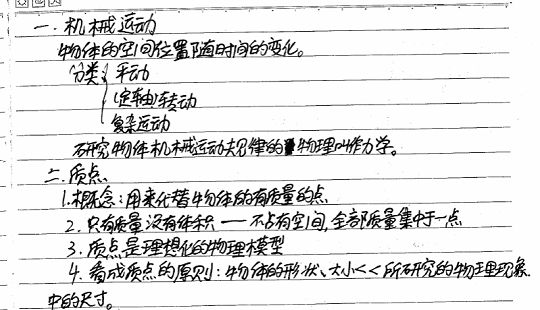 一.机械运动
物体的空间位置随时间的变化。
分类{平动
(定轴)转动
复杂运动
研究物体机械运动规律的物理叫作力学。
二.质点
1.概念:用来代替物体的有质量的点
2.只有质量没有体积——不占有空间,全部质量集中于一点
3.质点是理想化的物理模型
4.看成质点的原则:物体的形状、大小<<所研究的物理现象
中的尺寸。